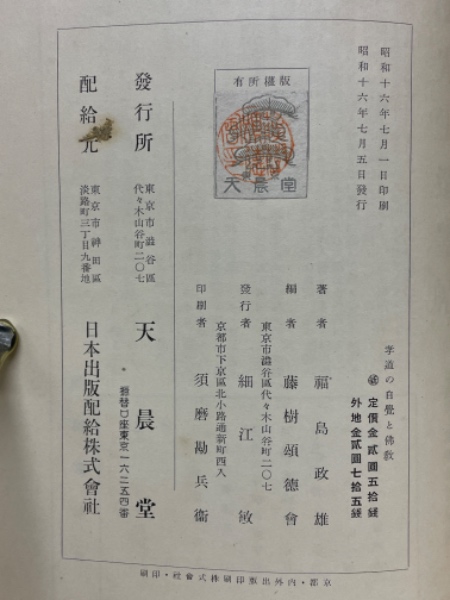 昭和十六年七月一日印刷
昭和十六年七月五日發行
孝道の自覺と佛教
定價金貳圓五拾錢
外地金貳圓七拾五錢
版權所有
天晨堂
著者 福島政雄
編者 藤樹頌德會
東京市澁谷區代々木山谷町二〇七
發行者 細江敏
京都市下京區北小路通新町西入
印刷者 須磨勘兵衞
發行所 東京市澁谷區代々木山谷町二〇七 天晨堂
振替口座東京一六二五四番
配給元 東京市神田區淡路町三丁目九番地 日本出版配給株式會社
京都・內外出版印刷株式會社・印刷